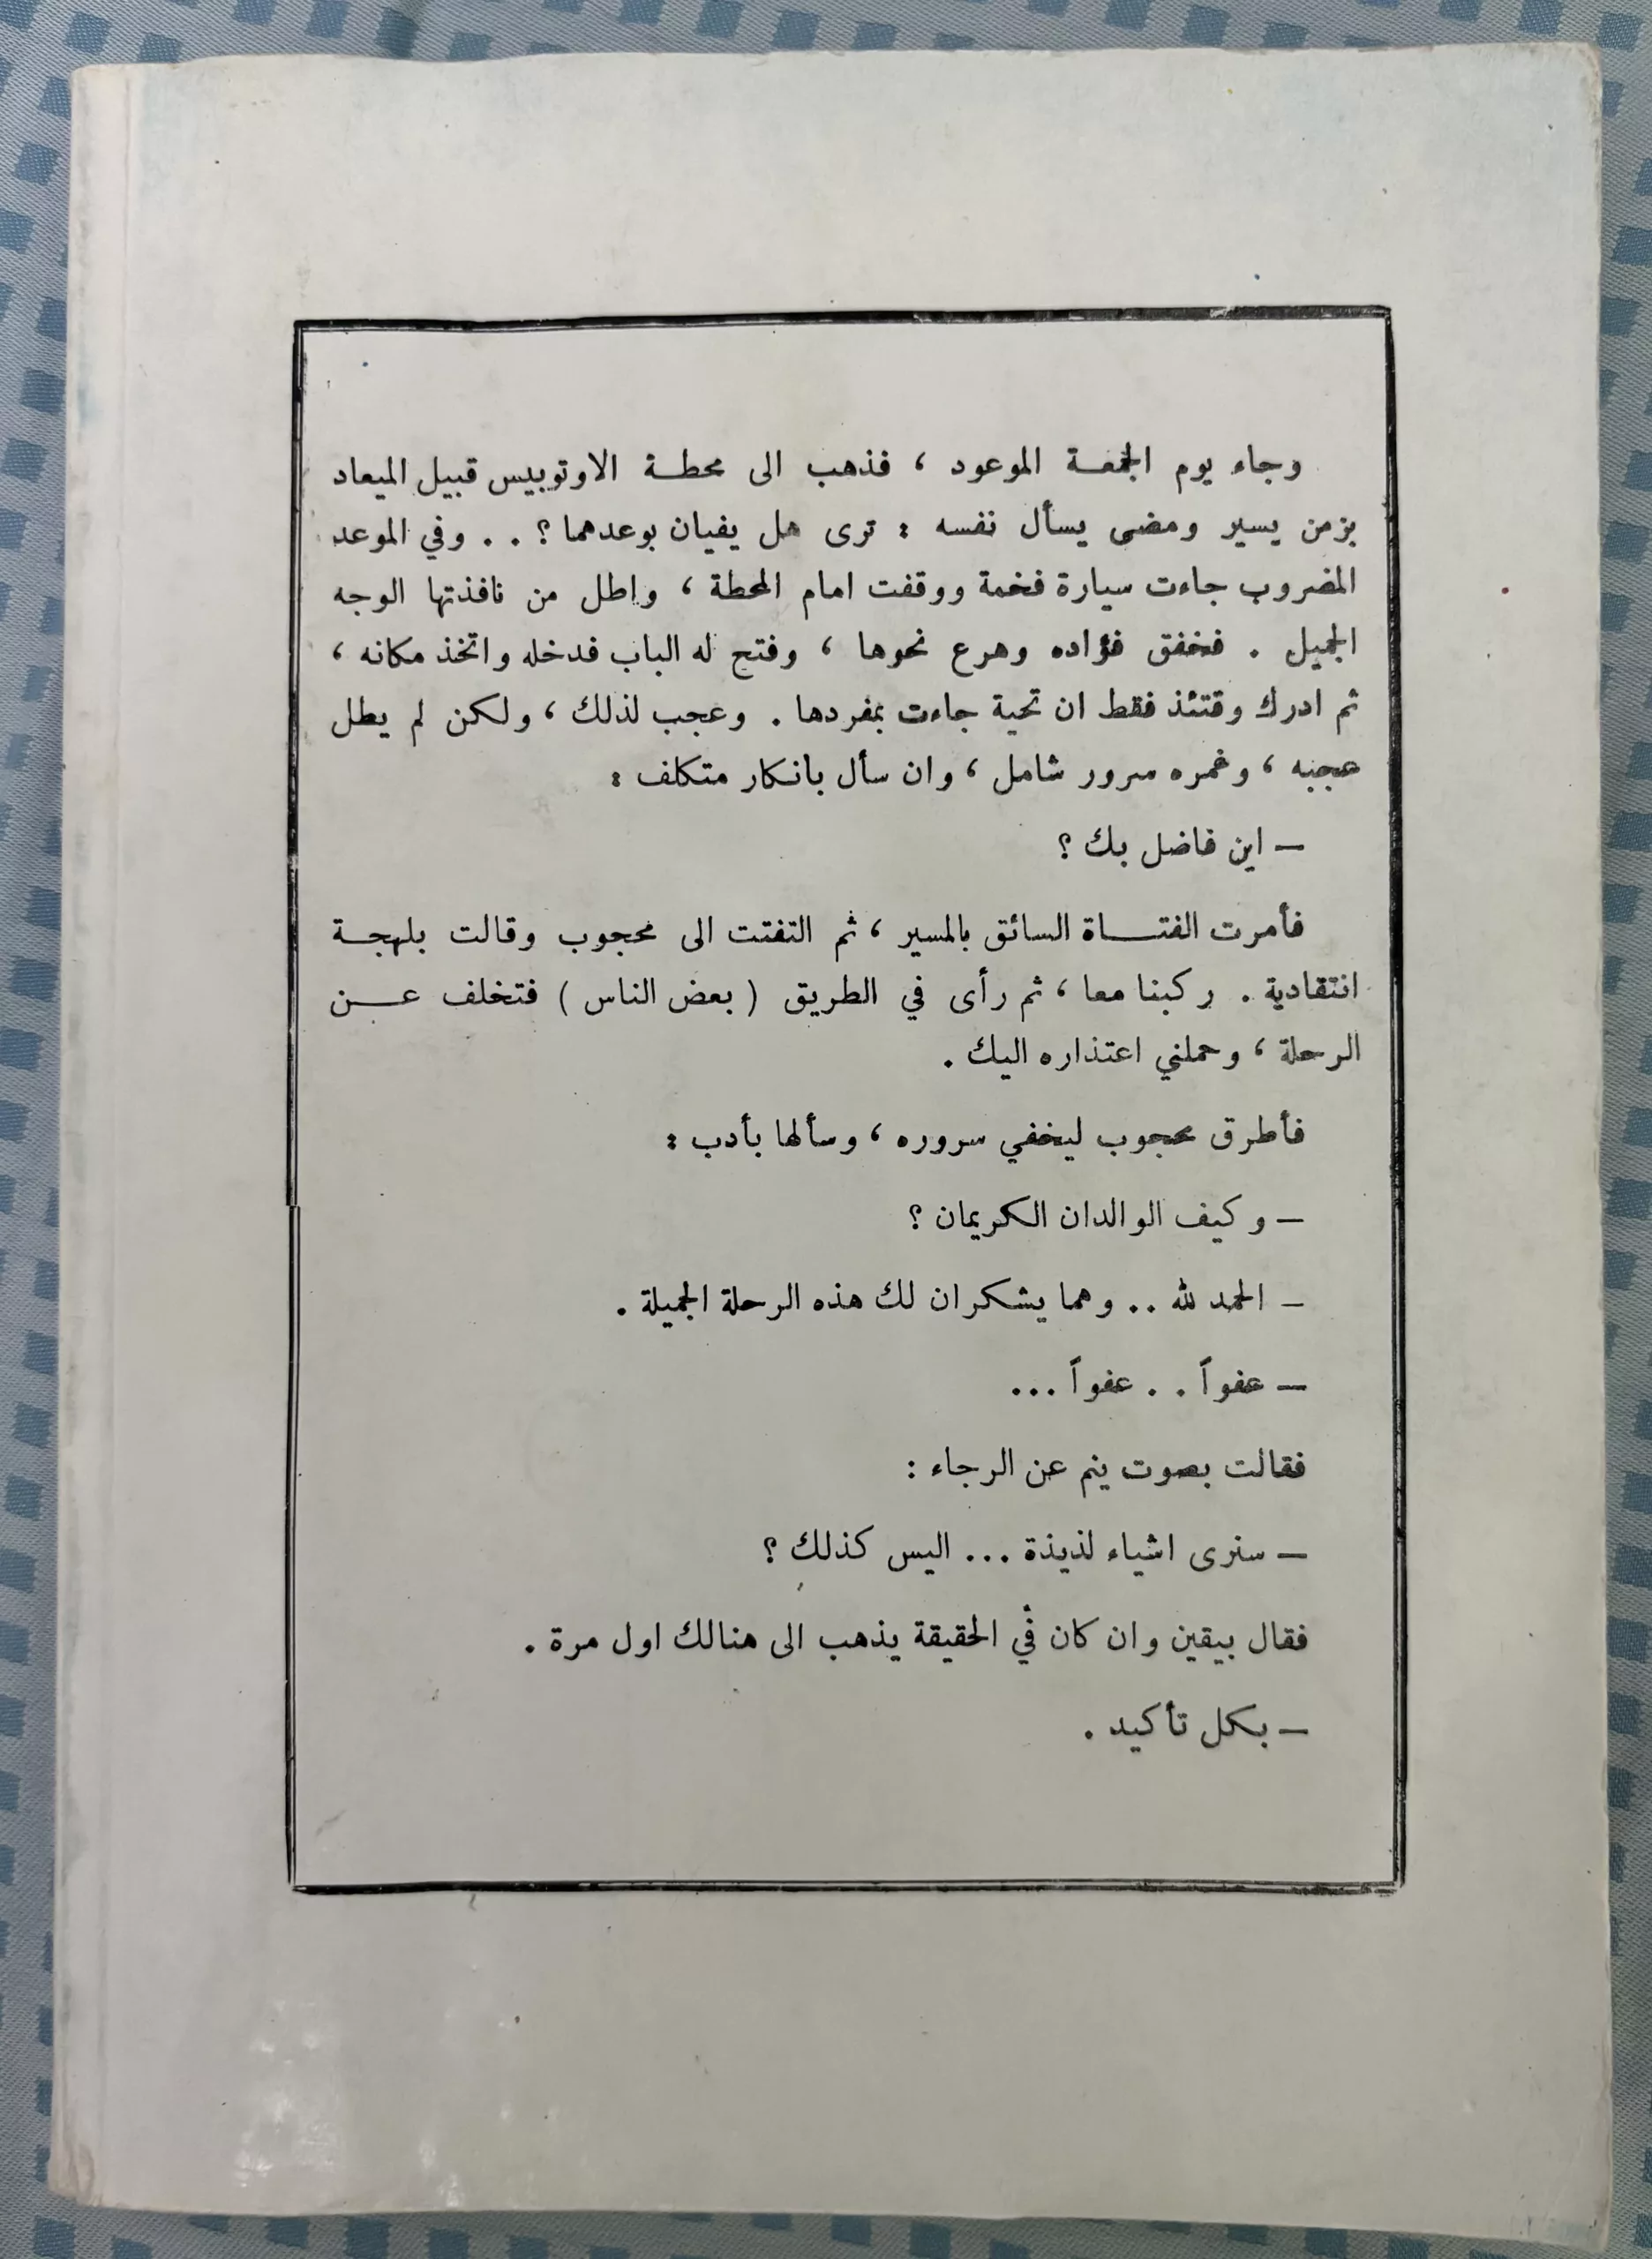 وجاء يوم الجمعة الموعود ، فذهب الى محطة الاوتوبيس قبيل الميعاد
بزمن يسير ومضى يسأل نفسه : ترى هل يفيان بوعدهما ؟ . . وفي الموعد
المضروب جاءت سيارة فخمة ووقفت امام المحطة ، واطل من نافذتها الوجه
الجميل . فخفق فؤاده وهرع نحوها ، وفتح له الباب فدخله واتخذ مكانه ،
ثم ادرك وقتئذ فقط ان تحية جاءت بمفردها . وعجب لذلك ، ولكن لم يطل
عجبه ، وغمره سرور شامل ، وان سأل بانكار متكلف :
— اين فاضل بك ؟
فأمرت الفتاة السائق بالمسير ، ثم التفتت الى محجوب وقالت بلهجة
انتقادية . ركبنا معا ، ثم رأى في الطريق ( بعض الناس ) فتخلف عن
الرحلة ، وحملني اعتذاره اليك .
فأطرق محجوب ليخفي سروره ، وسألها بأدب :
— وكيف الوالدان الكريمان ؟
— الحمد لله .. وهما يشكران لك هذه الرحلة الجميلة .
— عفواً . . عفواً ...
فقالت بصوت ينم عن الرجاء :
— سنرى اشياء لذيذة ... اليس كذلك ؟
فقال بيقين وان كان في الحقيقة يذهب الى هنالك اول مرة .
— بكل تأكيد .